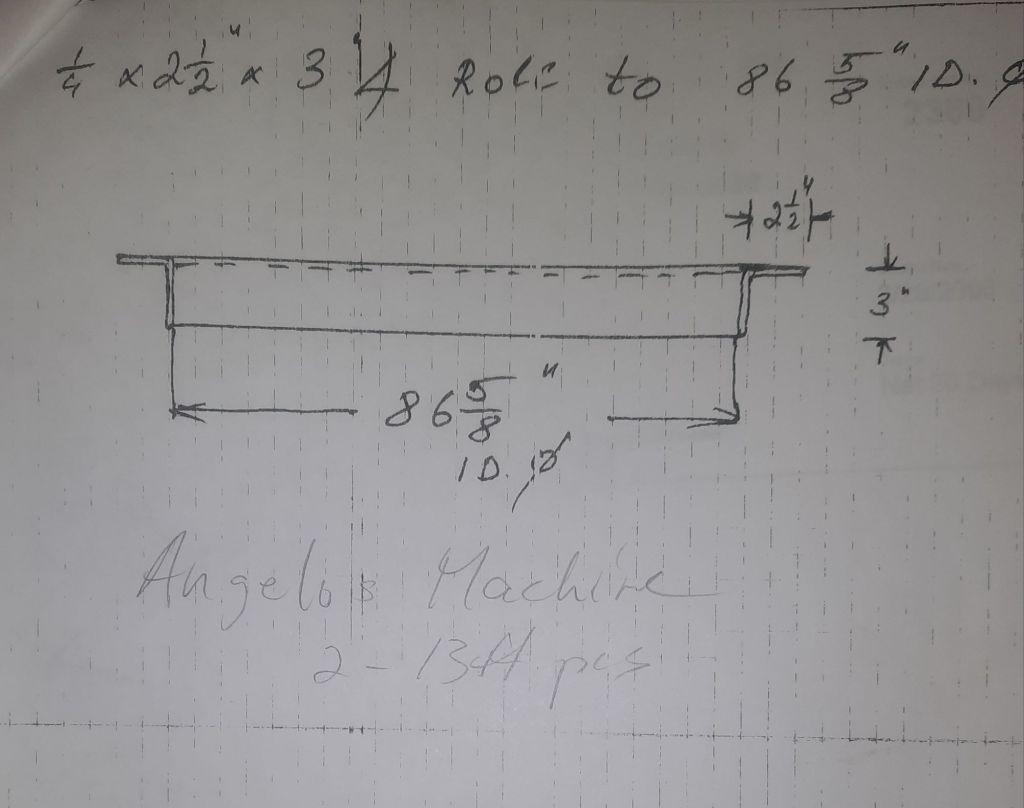 1/4 x 2 1/2" x 3" Roll to 86 5/8" ID. ⌀
2 1/2"
3"
86 5/8"
ID. ⌀
Angelo's Machine
2 - 13ft pcs